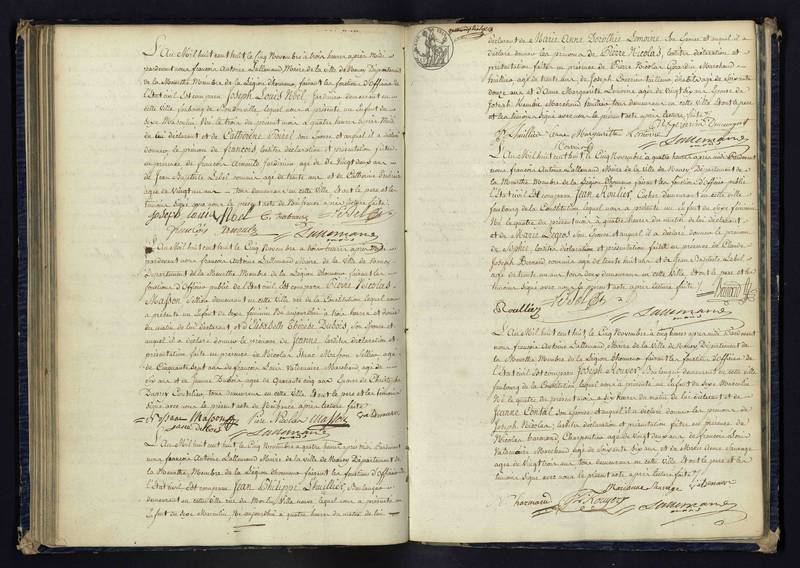 L'An Mil huit cent huit le Cinq Novembre à trois heures après Midi
pardevant nous françois Antoine Lallemand Maire de la Ville de Nancy Département
de la Meurthe Membre de la Légion d'honneur faisant les fonctions d'Officier de
l'Etat civil Est comparu Joseph Louis Noël Jardinier demeurant en
cette Ville faubourg de lequel nous a présenté un Enfant du
Sexe Masculin Né le trois du présent mois à quatre heures après Midi
de lui déclarant et de Catherine Poirel son Epouse et auquel il a déclaré
donner le prénom de françois, lesdites déclaration et présentation faites
en présence de françois Jardinier agé de Vingt deux ans
de Jean Baptiste Lebel commis agé de trente ans et de Catherine
agée de Vingt un ans tous demeurans en cette Ville Et ont le pere et les
témoins Signé avec nous le présent acte de Naissance après lecture faite
Joseph Louis Noel Lebel
françois
Lallemand
L'An Mil huit cent huit le Cinq Novembre à trois heures après Midi
pardevant nous françois Antoine Lallemand Maire de la Ville de Nancy
Département de la Meurthe Membre de la Légion d'honneur faisant les
fonctions d'Officier public de l'Etat civil Est comparu Pierre Nicolas
Masson Sellier demeurant en cette Ville rue de la Constitution lequel nous
a présenté un Enfant du Sexe féminin Né aujourd'hui à trois heures
du matin de lui déclarant et d'Elisabeth Thérèse Dubois son Epouse et
auquel il a déclaré donner le prénom de Jeanne, lesdites déclaration et
présentation faites en présence de Nicolas Isaac Masson Sellier agé
de Cinquante Sept ans de françois Louis Valdenaire Marchand agé de
six ans et de Jeanne Dubois agée de Quarante cinq ans Epouse de Christophe
demeurans en cette Ville Et ont le pere et les témoins
Signé avec nous le présent acte de Naissance après lecture faite
Isaac Masson Pierre Nicolas Masson Valdenaire
Lallemand
L'An Mil huit cent huit le Cinq Novembre à quatre heures après Midi Pardevant
nous françois Antoine Lallemand Maire de la Ville de Nancy Département de
la Meurthe, Membre de la Légion d'honneur faisant les fonctions d'Officier de
l'Etat civil Est comparu Jean Philippe Lhuillier Boulanger
demeurant en cette Ville rue du Moulin Ville neuve, lequel nous a présenté un
Enfant du Sexe Masculin Né aujourd'hui à quatre heures du matin de lui
déclarant et de Marie Anne Dorothée Lemoine son Epouse et auquel il a
déclaré donner les prénoms de Pierre Nicolas, lesdites déclaration et
présentation faites en présence de Pierre Nicolas Marchand
agé de trente ans de Joseph agé de soixante
douze ans et d'Anne Marguerite Lemoine agée de Vingt six ans Epouse de
Joseph Marchand tous demeurans en cette Ville Et ont le pere
et les témoins Signé avec nous le présent acte après lecture faite
Lhuillier anne Marguerite Lemoine
Lallemand
L'An Mil huit cent huit le Cinq Novembre à quatre heures après midi Pardevant
nous françois Antoine Lallemand Maire de la Ville de Nancy, Département de
la Meurthe Membre de la Légion d'honneur faisant les fonctions d'Officier public
de l'Etat Civil Est comparu Jean Roulier, Cocher demeurant en cette Ville
faubourg de la Constitution lequel nous a présenté un Enfant du Sexe féminin
Né le quatre du présent mois à quatre heures du matin de lui déclarant
et de Marie Legros Son Epouse et auquel il a déclaré donner le prénom
de Sophie, lesdites déclaration et présentation faites en présence de Claude
Joseph Bernard commis agé de trente huit ans et de Jean Baptiste Lebel
agé de trente ans tous deux demeurans en cette Ville, Et ont le pere et les
témoins Signé avec nous le présent acte après lecture faite
Lebel
Lallemand
L'An Mil huit cent huit, le Cinq Novembre à cinq heures après midi Pardevant
nous françois Antoine Lallemand, Maire de la Ville de Nancy, Département de
la Meurthe Membre de la Légion d'honneur faisant les fonctions d'Officier de
l'Etat civil Est comparu Joseph Rouyer, Boulanger demeurant en cette Ville
faubourg de la Constitution lequel nous a présenté un Enfant du Sexe Masculin
Né le quatre du présent mois à six heures du matin de lui déclarant et de
Jeanne Contal Son Epouse et auquel il a déclaré donner les prénoms de
Joseph Nicolas, lesdites déclaration et présentation faites en présence de
Nicolas Charpentier agé de Vingt deux ans de françois Louis
Valdenaire Marchand agé de soixante six ans et de Marie Anne Sauvage
agée de Vingt tous demeurans en cette Ville Et ont le pere et les
témoins Signé avec nous le présent acte après lecture faite
Marianne Sauvage Valdenaire
J Rouyer Lallemand